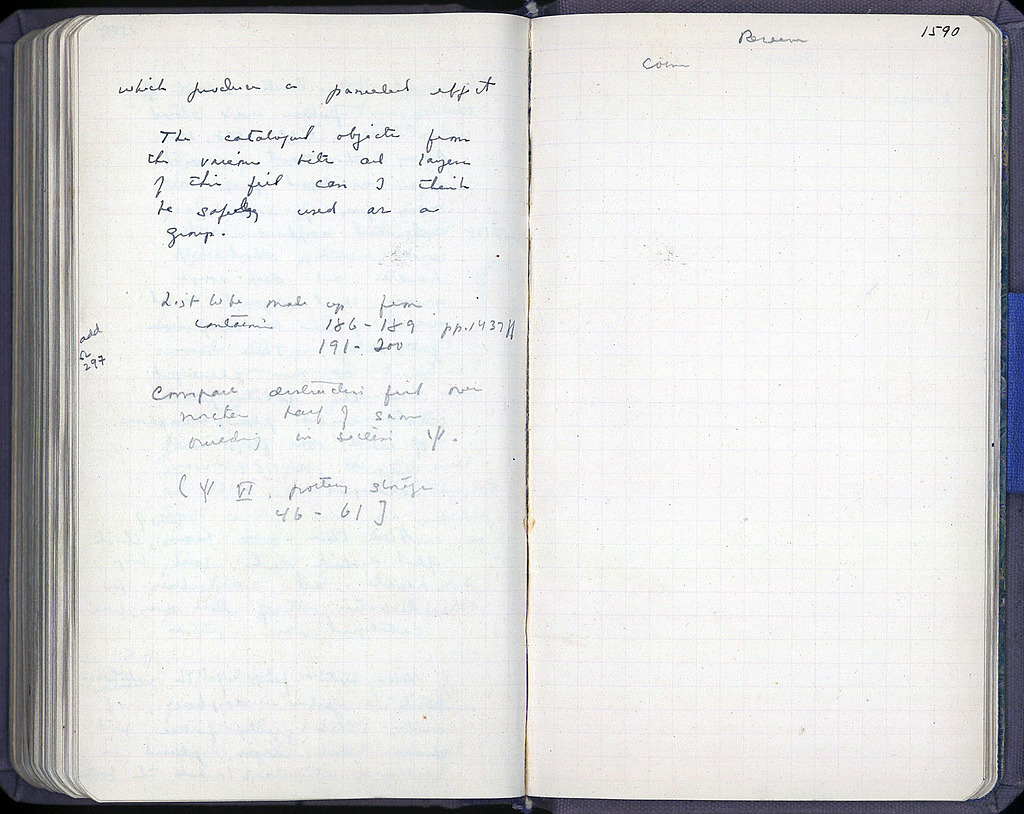 which produce a parallel effect
The catalogued objects from
the various lots and layers
of this fill can I think
be safely used as a
group.
List to be made up from
containers 186-189 pp. 1437ff
191-200
add
297
Compare destruction fill over
northern half of same
building in section Ψ.
(Ψ VI. pottery storage
46-61]
1590
Coin